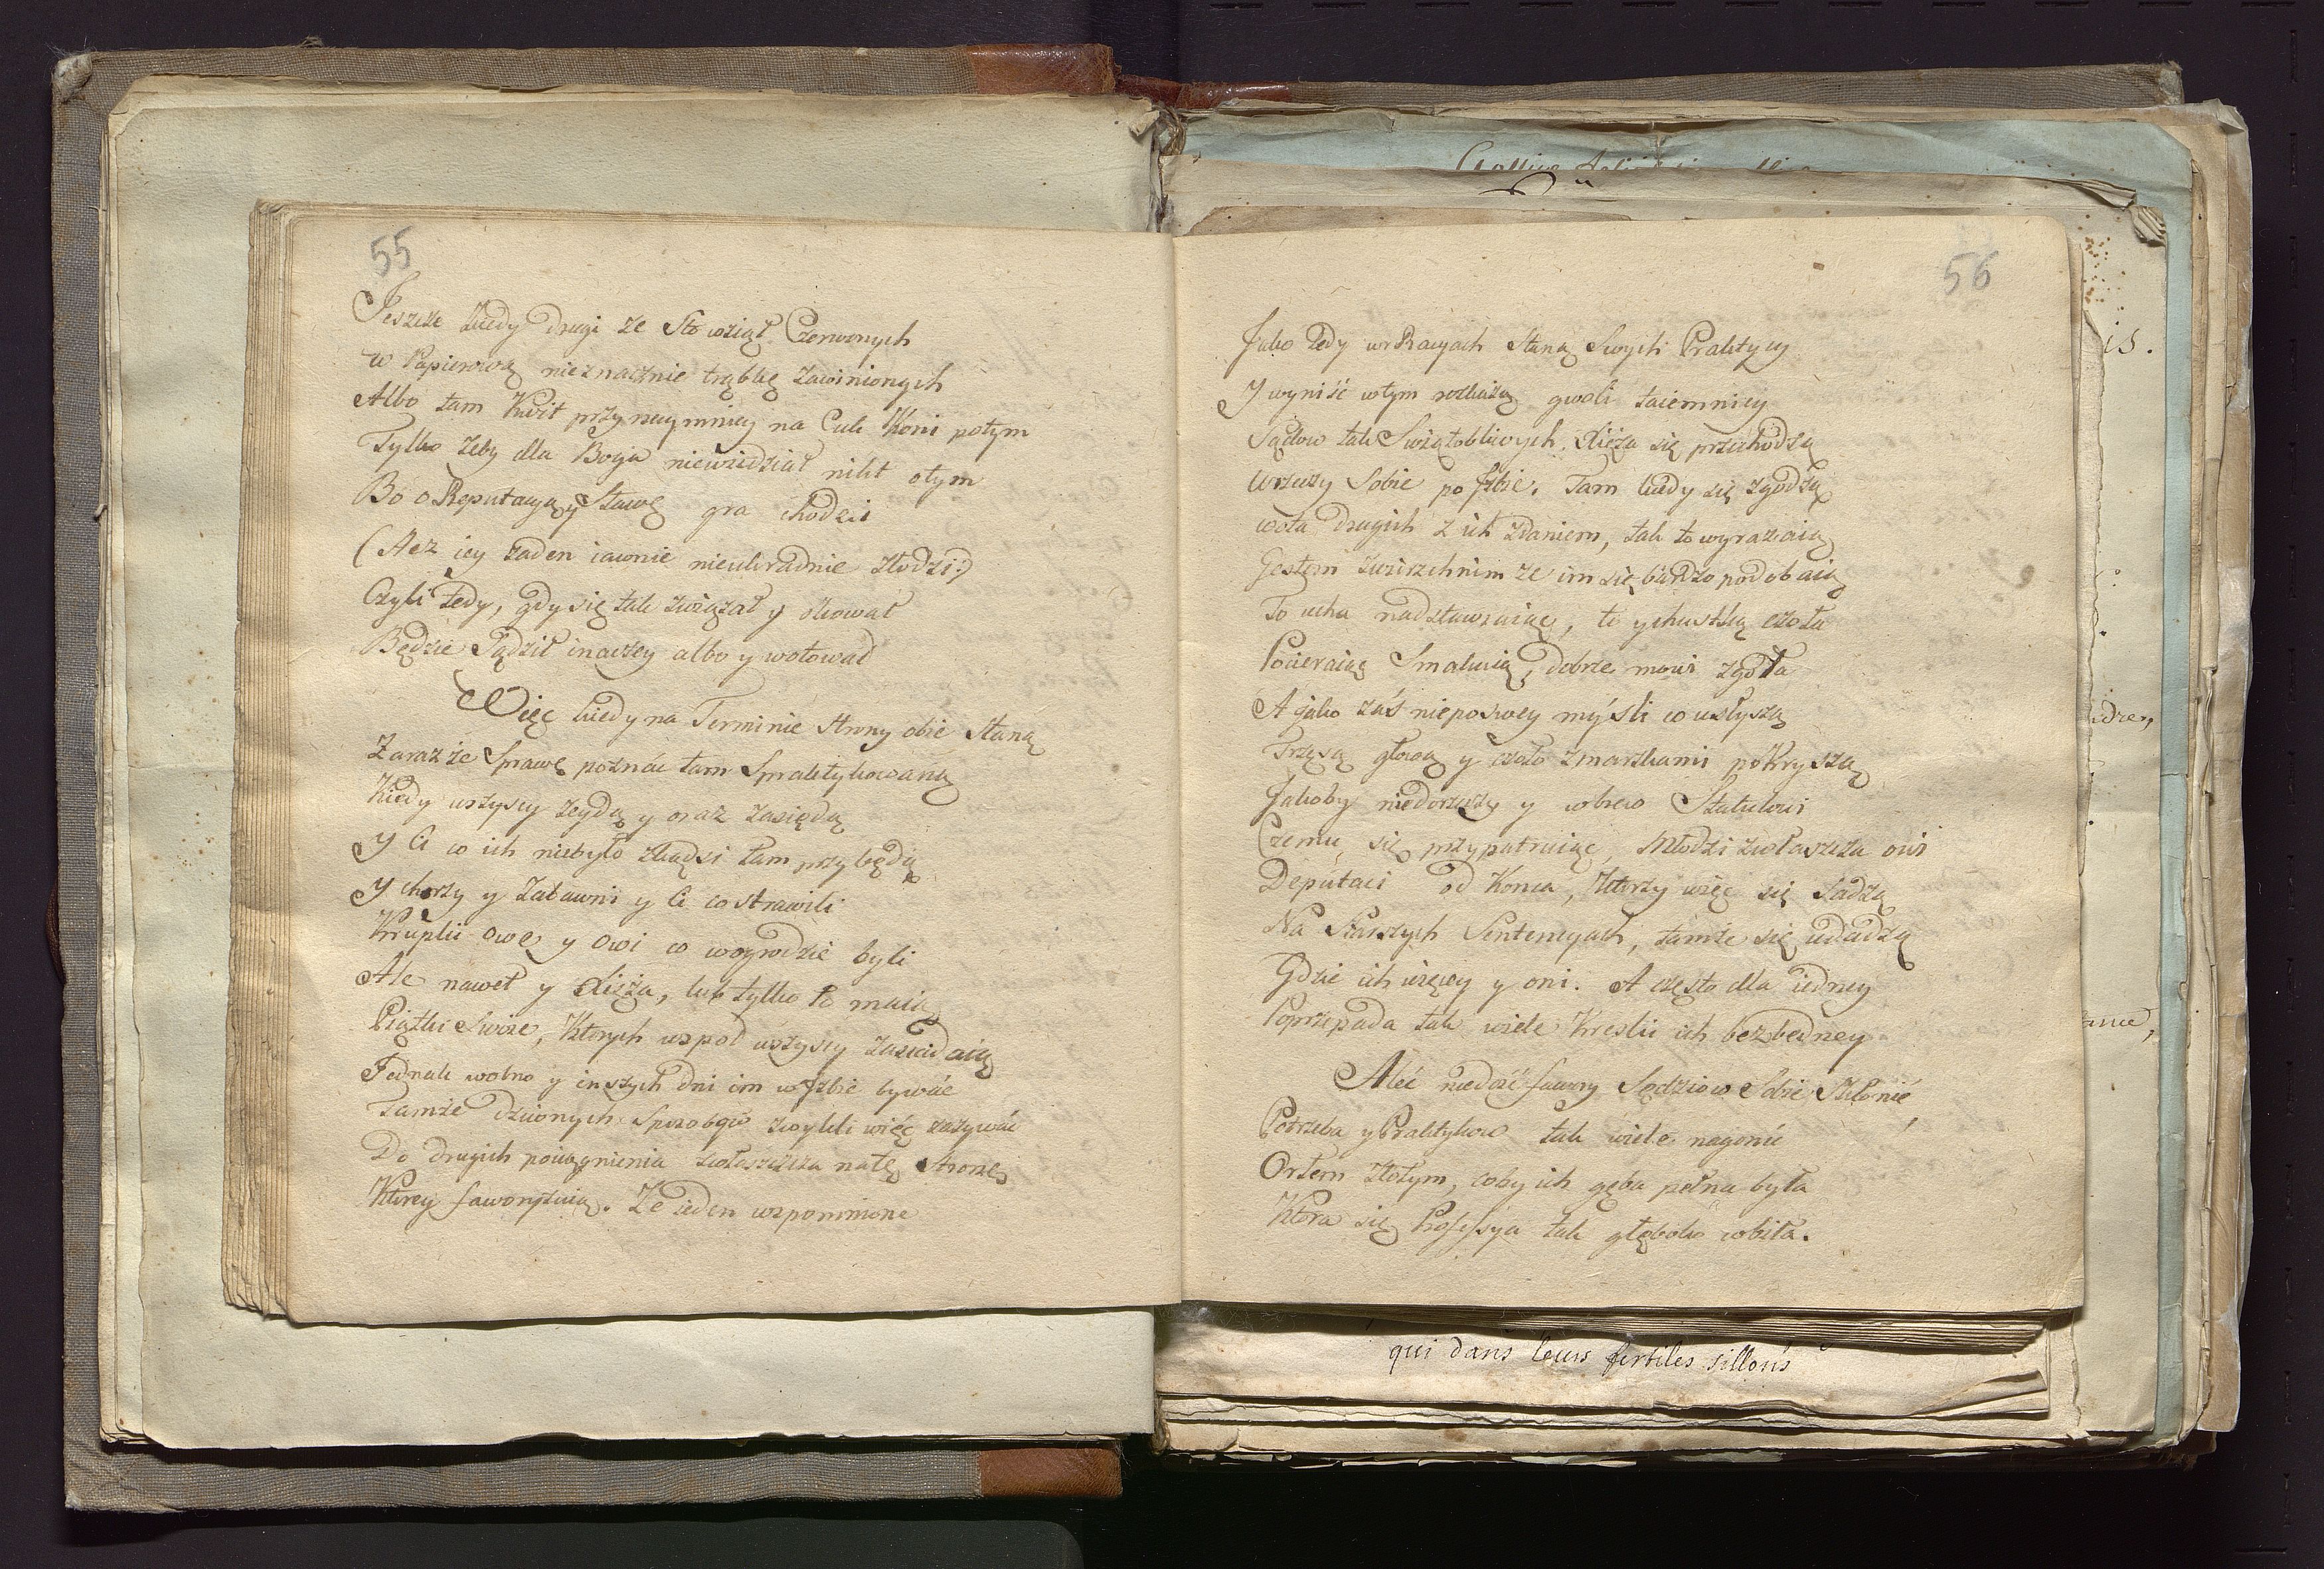 55
Jeszcze kiedy drugi ze Sto wziął Czerwonych
w Papierową nieznacznie trąbkę zawinionych
Albo tam Kwit przynaymniey na Cuk Koni potym
Tylko żeby dla Boga niewiedział nikt otym
Bo o Reputacyą y Sławę gra chodzi
(Acz iey żaden iawnie nieukradnie złodzi:)
Czyli tedy, gdy się tak związał y okował
Będzie Sądził inaczey albo y wotował
Więc kiedy na Terminie Strony obie Staną
Zarazże Sprawę poznać tam Spraktykowaną
Kiedy wszyscy zeydą y oraz zasiędą
y Ci co ich niebyło zkądsi tam przybędą
y chorzy y Zabawni y Ci co strawili
Krupki owe y owi co wogrodzie byli
Ale nawet y Xięża, lub tylko to maią
Piątki Swoie, Ktorych wspoł wszyscy zasiadaią
Jednak wolno y inszych dni im w Jzbie bywać
Tamże dziwnych Sposobow zwykli więc zażywać
Do drugich pociągnienia zwłaszcza natę Stronę
Ktorey faworyzuią. Ze ieden wspomnione
56
Jako tedy wRacyach Staną Swych Praktycy
y wyniść wtym rozkażą gwoli taiemnicy
Sądow tak Swiątobliwych, Xięża się przechodzą
Wrzeczy Sobie po Jzbie. Tam kiedy się zgodzą
wota drugich z ich zdaniem, tak to wyrażaią
Gestem zwierzchnim że im się bardzo podobaią
To ucha nadstawiaiąc, to ychustką czoła
Pocieraiąc Smakuią, dobrze mowi zgoła
A jako zaś nieposwey myśli co usłyszą
Trzęsą głową y czoło zmarszkami pokryszą
Jakoby niedorzeczy y wbrew Statutowi
Czemu się przypatruiąc, Młodzi zwłaszcza owi
Deputaci od Konca, Ktorzy więc się Sadzą
Na Starszych Sentencyach, tamże się udadzą
Gdzie ich więcey y oni. A często dla iedney
Poprzepada tak wiele Kreski ich bezbedney
Aleć niedość fawory Sędziow Sobie Skłonić
Potrzeba y Praktykow tak wiele nagonić
Ortem złotym, coby ich gęba pełna była
Ktora się Professya tak głęboko wbiła.
qui dans leurs fertiles sillons
is.